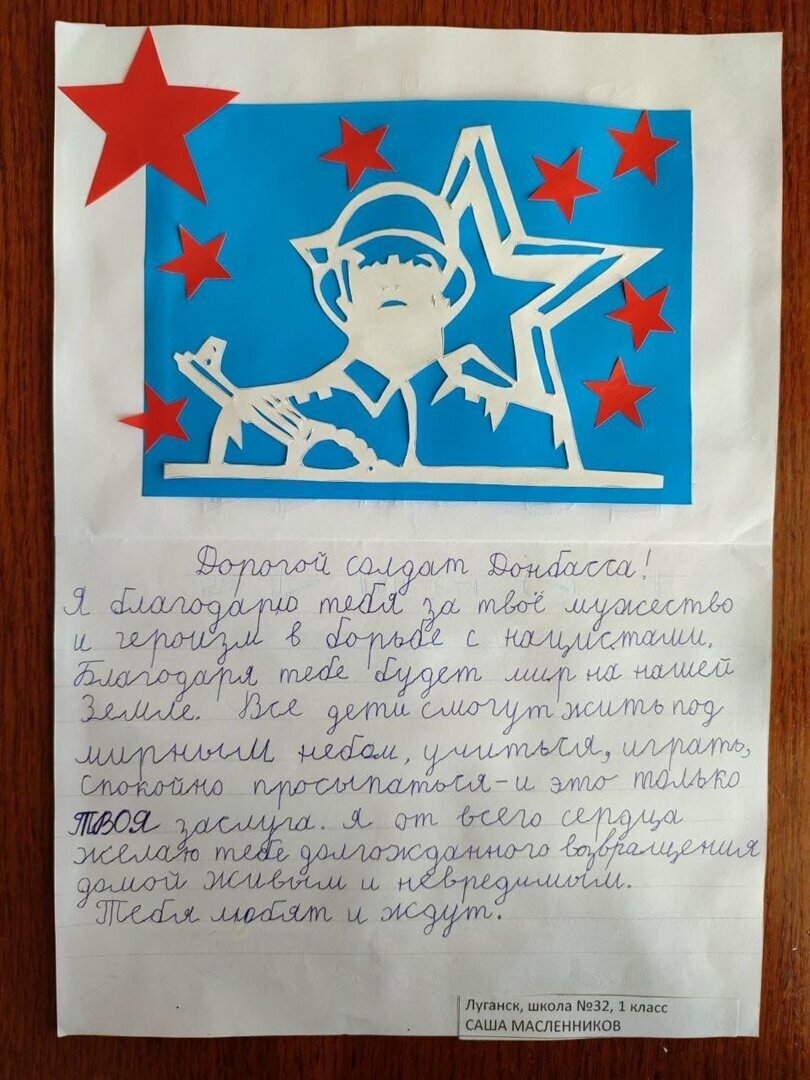 Дорогой солдат Донбасса!
Я благодарю тебя за твоё мужество
и героизм в борьбе с нацистами.
Благодаря тебе будет мир на нашей
Земле. Все дети смогут жить под
мирным небом, учиться, играть,
спокойно просыпаться - и это только
ТВОЯ заслуга. Я от всего сердца
желаю тебе долгожданного возвращения
домой живым и невредимым.
Тебя любят и ждут.
Луганск, школа №32, 1 класс
САША МАСЛЕННИКОВ